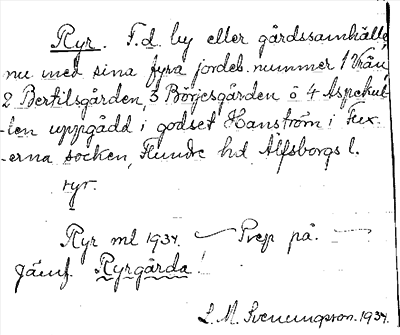 Ryr. F.d. by eller gårdssamhälle,
nu med sina fyra jordeb. nummer 1 Vrån
2 Bertilsgården, 3 Börjesgården o 4 Aspehul-
ten uppgådd i godset Hanström i Tux-
erna socken, Flundre hd Älfsborgs l.
ryr.
Ryr ml 1934. — Prep på. —
Jämf. Ryrgärda!
L. M. Svenungsson. 1934.